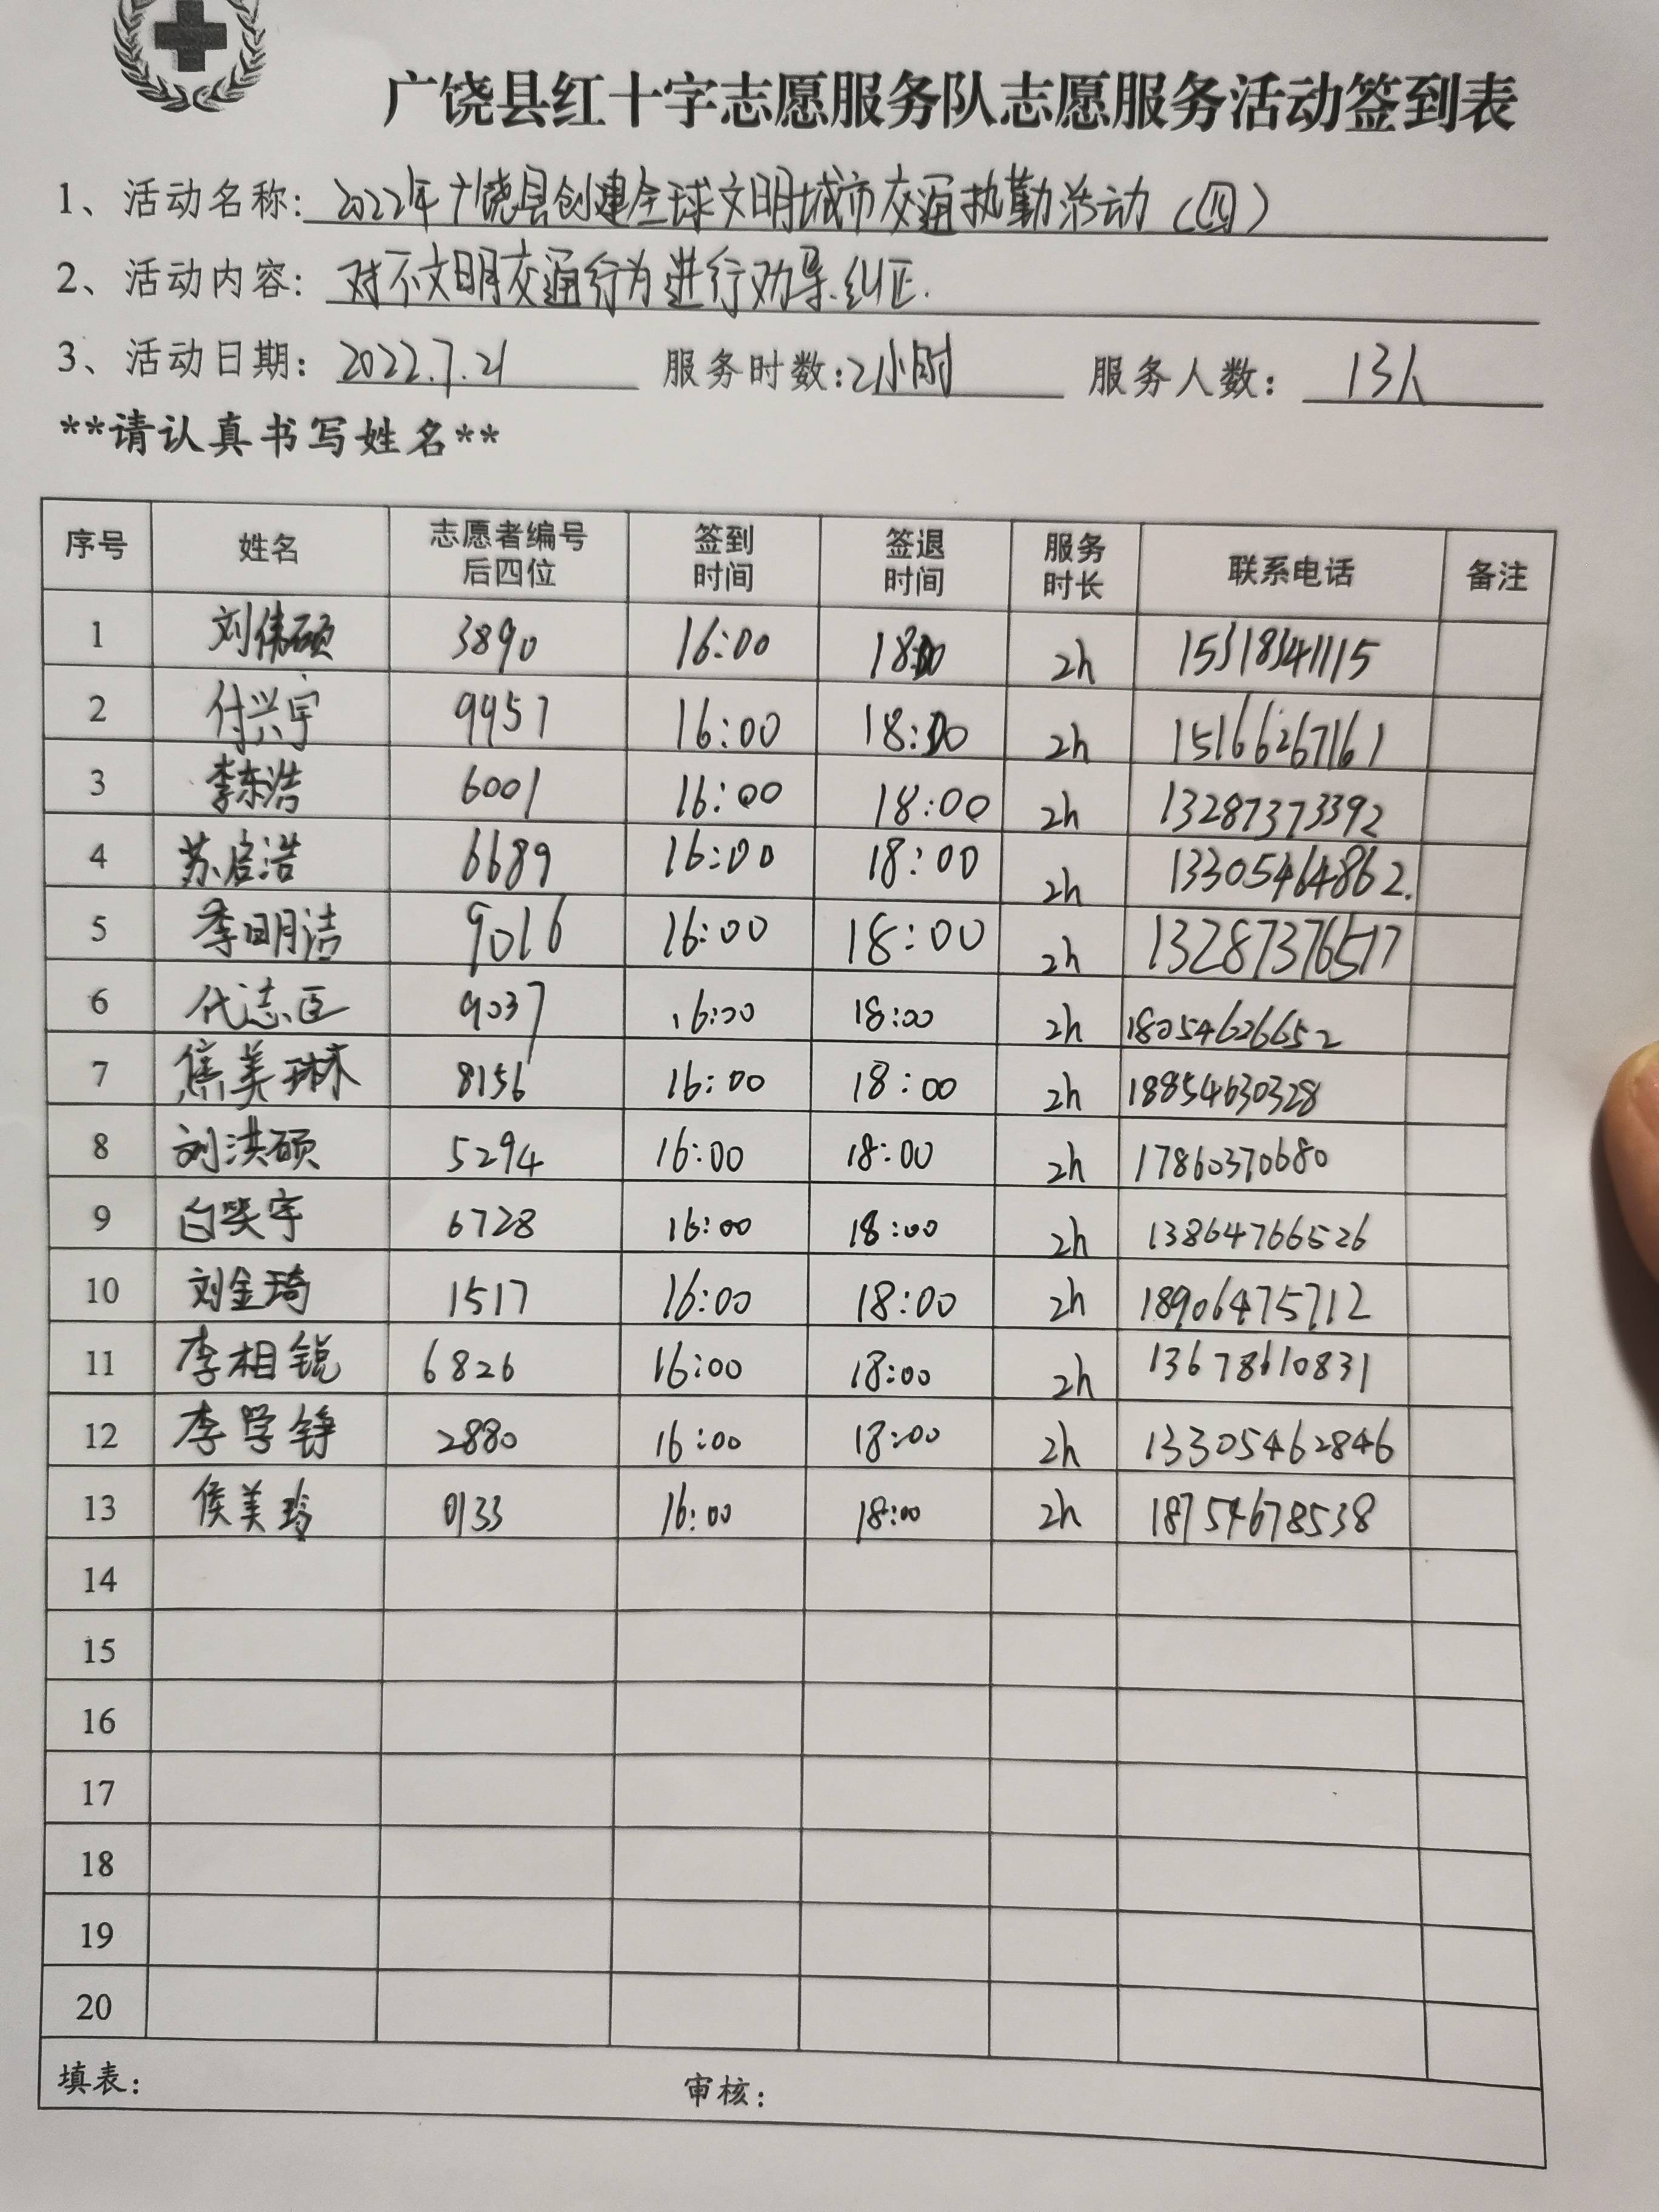 广饶县红十字志愿服务队志愿服务活动签到表
1、活动名称: 2022年广饶县创建全球文明城市交通执勤活动(四)
2、活动内容: 对不文明交通行为进行劝导.纠正.
3、活动日期: 2022.7.21 服务时数: 2小时 服务人数: 13人
**请认真书写姓名**
序号 姓名 志愿者编号后四位 签到时间 签退时间 服务时长 联系电话 备注
1 刘伟硕 3890 16:00 18:00 2h 15318341115
2 付兴宇 9957 16:00 18:00 2h 15166267161
3 李东浩 6001 16:00 18:00 2h 13287373392
4 苏启浩 6689 16:00 18:00 2h 13305464862.
5 季明洁 9016 16:00 18:00 2h 13287376517
6 代志臣 9037 16:00 18:00 2h 18054626652
7 焦美琳 8156 16:00 18:00 2h 18854630328
8 刘洪硕 5294 16:00 18:00 2h 17860370680
9 白笑宇 6728 16:00 18:00 2h 13864766526
10 刘金琦 1517 16:00 18:00 2h 18906475712
11 李相锐 6826 16:00 18:00 2h 13678610831
12 李学铮 2880 16:00 18:00 2h 13305462846
13 侯美玲 0133 16:00 18:00 2h 18754678538
14
15
16
17
18
19
20
填表: 审核: